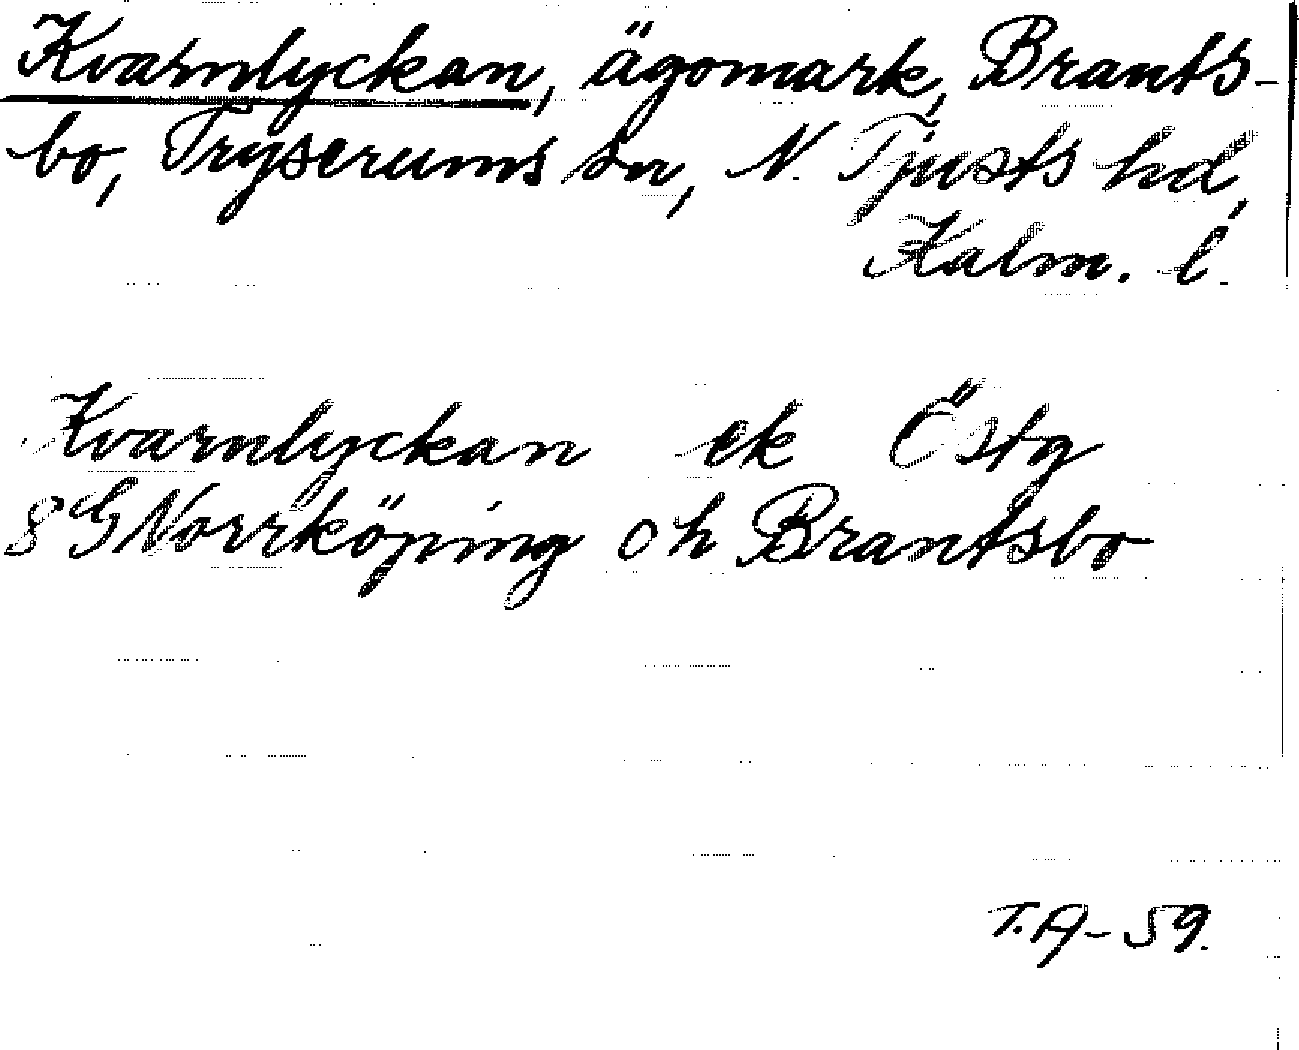 Kvarnlyckan, ägomark, Brants-
bo, Tryserums sn, N. Tjusts hd,
Kalm. l.
Kvarnlyckan ek Östg
8G Norrköping o h Brantsbo
T.A-59.